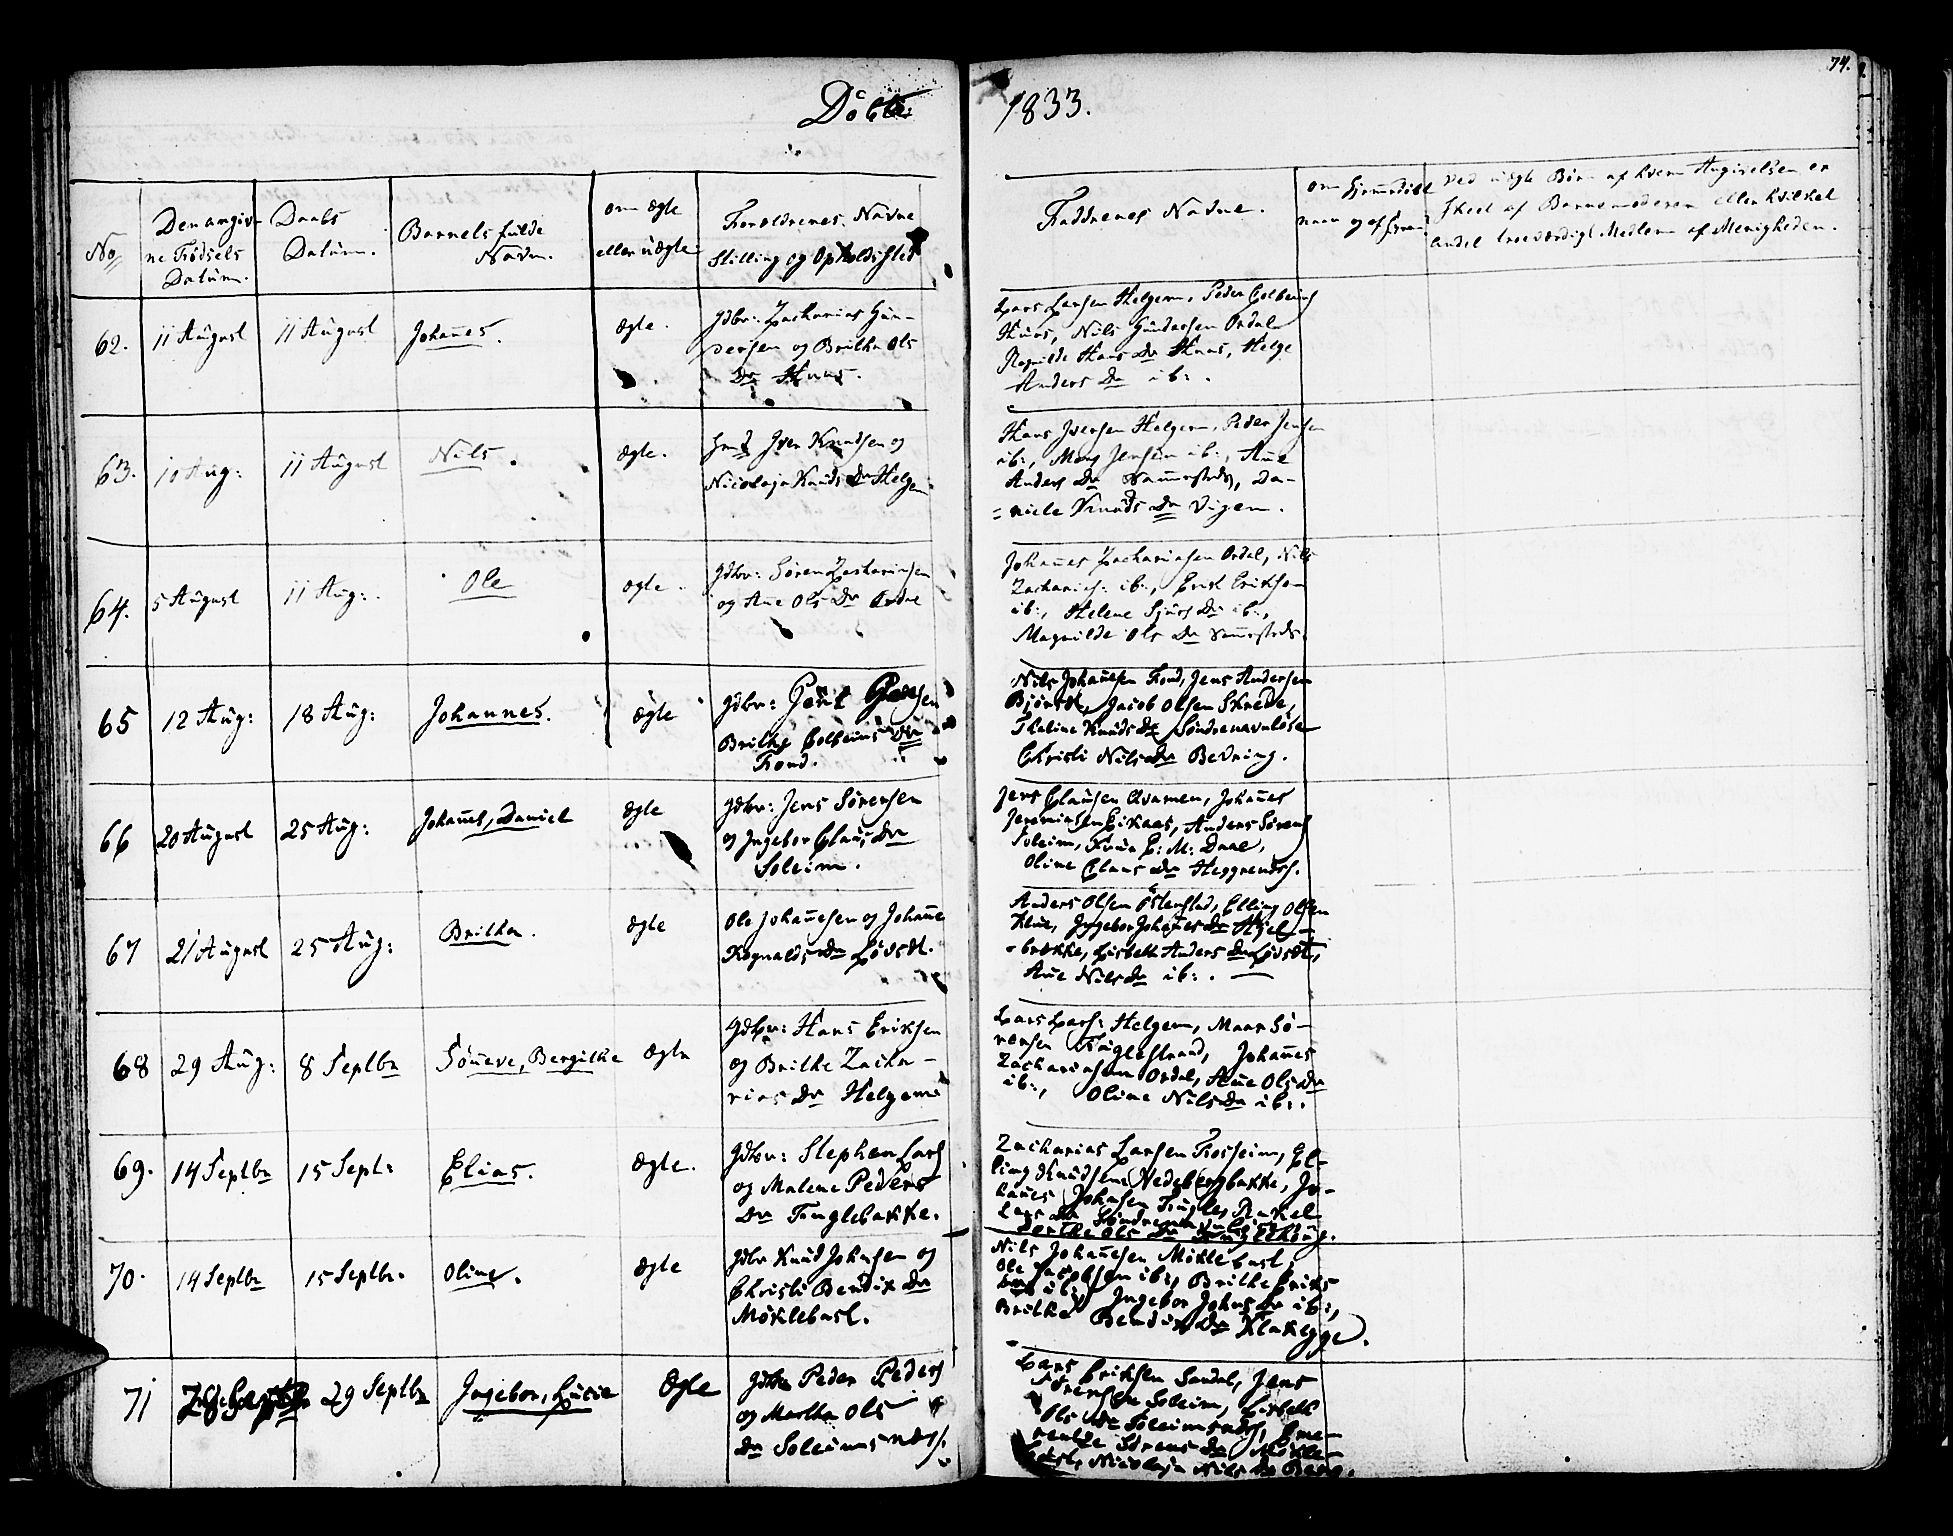 74.
Döbte 1833.
No
Den angiv-
ne Fødsels
Datum.
Daabs
Datum.
Barnets fulde
Navn.
om ægte
eller uægte
Forældrenes Navne
Stilling og Opholdsted
Faddrenes Navne.
om hjemmedøbt
naar og af hvem
ved uægte Børn af hvem Angivelsen er
skeet af Barnemoderen eller hvilket
andet troeværdigt Medlem af Menigheden.
62.
11 August
11 August
Johañes.
ægte.
Gdbr: Zacharias Gun-
dersen og Brithe Ols
Dr Huus.
Lars Larsen Helgem, Peder Colbeins
Huus, Nils Gundersen Ordal
Ragnilde Hans Dr Huus, Helge
Anders Dr ib:.
63.
10 Aug:
11 August
Nils.
ægte.
Iver Knudsen og
Nicolaja Knuds Dr Helgem
Hans Iversen Helgem, Peder Jensen
ib:, Mons Jensen ib:, Añe
Anders Dr Nammesteds, Da-
=niele Knuds Dr Vigen.
64.
5 August
11 Aug:.
Ole
ægte.
Gdbr: Søren Zachariasen
og Añe Ols Dr Ordal
Johañes Zachariasen Ordal, Nils
Zacharias: ib:, Ernst Eriksen
ib:, Helene Sjurs Dr ib:,
Magnilde Ols Dr
65
12 Aug:
18 Aug:
Johannes.
ægte
Gdbr:
Brithe Colbeins Dr
Fond.
Nils Johañesen Fond, Jens Andersen
Jacob Olsen Skrede,
Thaline Knuds Dr Søndrenavnløse
Christi Nils Dr Bedring.
66
20 August
25 Aug:
Johañes, Daniel
ægte
Gdbr: Jens Sørensen
og Ingebor Claus Dr
Soleim.
Jens Clausen Qvamen, Johañes
Jeremiasen Eikaas, Anders Sørens
Soleim, Frue C: M: Daae,
Oline Claus Dr Heggrends.
67
21 August
25 Aug:
Brithe.
ægte
Ole Johañesen og Johañe
Rognalds Dr Løvset.
Anders Olsen Østenstad, Elling Olsen
Ingebor Johañes Dr Hjel-
-brække, Lisbeth Anders Dr Løvset,
Añe Nils Dr ib:.
68
29 Aug:
8 Septbr
Søneve, Bergithe
ægte
Gdbr: Hans Eriksen
og Brithe Zacha-
rias Dr Helgem
Lars Lars: Helgem, Maar Sø-
rensen Fuglestrand, Johañes
Zachariasen Ordal, Añe Ols Dr
ib:, Oline Nils Dr ib:.
69.
14 Septbr
15 Sept:
Elias.
ægte.
Gdbr: Stephen Lars
og Malene Peders
Dr Fuglebakke.
Zacharias Larsen Fosseim, El-
ling Knudsen Nedebergbakke, Jo-
hañes Johnsen Fugle, Rakel
Lars Dr
Ols Dr
70.
14 Septbr
15 Septbr.
Oline.
ægte
Gdbr Knud Johnsen og
Christi Bendix Dr
Møklebust.
Nils Johañesen Møklebust,
Ole Jacobsen ib:, Brithe Eriks
Dr ib:, Ingebor Johns Dr ib:,
Brithe Bendix Dr Klakegge.
71
29 Septbr
Ingebor, Lucie
ægte
Gdbr Peder Peders
og Marthe Ols
Dr Soleimsnes.
Lars Eriksen Sandal, Jens
Sørensen Soleim, Lisbeth
Ols Dr Soleimsnes, Eme-
rentze Sørens Dr Møkle-
bust, Nicolaja Nils Dr Berg.